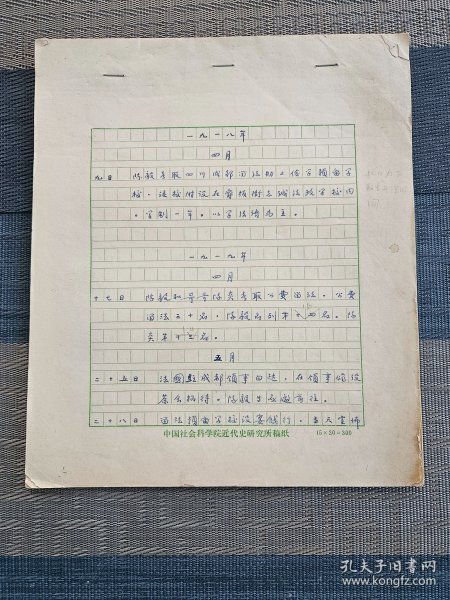 一九一八年
四月
九日 陈毅考取四川成都留法勤工俭学预备学
校。该校附设在爵板街志诚法政学校内
。学制一年。以学法语为主。
一九一九年
四月
十七日 陈毅和哥哥陈炎考取公费留法。公费
留法三十名。陈毅名列第十四名。陈
炎第十三名。
五月
二十五日 法国驻成都领事白达，在领事馆设
茶会招待。陈毅等应邀前往。
二十八日 留法预备学校设宴饯行。当天宣佈
中国社会科学院近代史研究所稿纸 15×20=300
孔夫子旧书网
www.kongfz.com